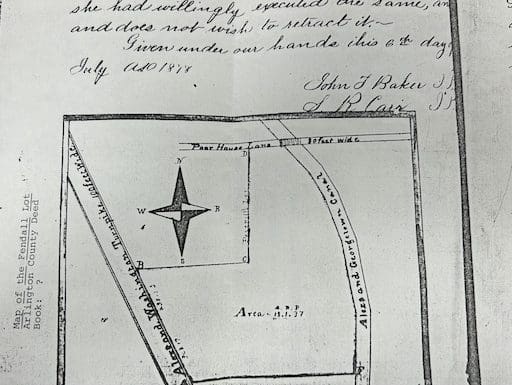 she had willingly executed the same, an
and does not wish to retract it.~
Given under our hands this 6th day
July AD 1878
John T Baker J.P
S R Carr J.P
Poor House Lane 30 feet wide
N
W
E
S
D
B
C
Alex and Washington Turnpike
Alex and Georgetown Canal
A. R. P
Area - 13.1.37
Map of the Fendall Lot
Arlington County Deed
Book: ?